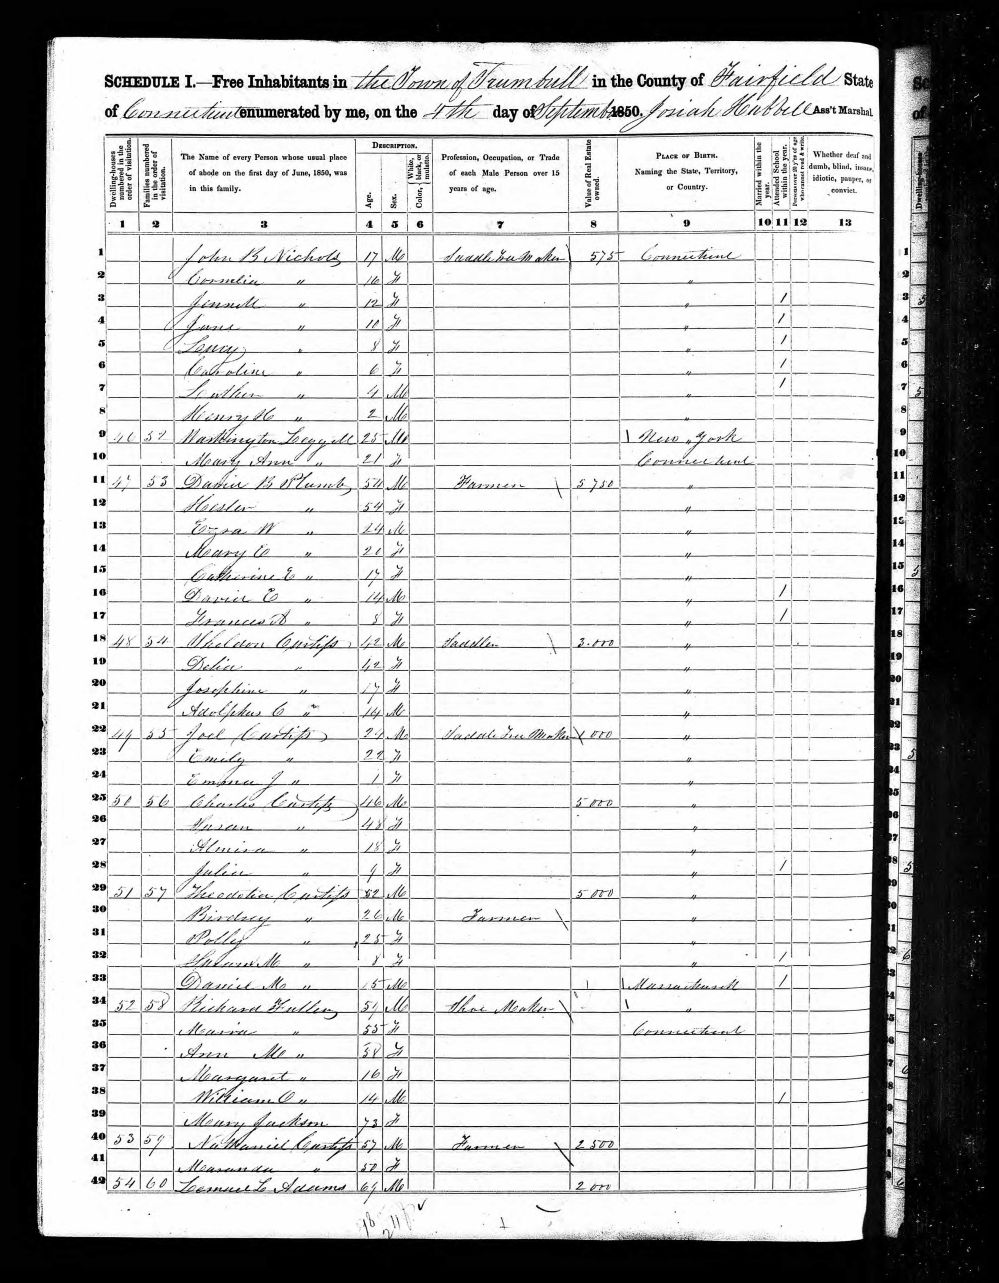 SCHEDULE I.—Free Inhabitants in the Town of Trumbull in the County of Fairfield State
of Connecticut enumerated by me, on the 4th day of September 1850. Josiah Hubbell Ass't Marshal
Dwelling-houses numbered in the order of visitation.
Families numbered in the order of visitation.
The Name of every Person whose usual place of abode on the first day of June, 1850, was in this family.
DESCRIPTION.
Age.
Sex.
Color, White, black, or mulatto.
Profession, Occupation, or Trade of each Male Person over 15 years of age.
Value of Real Estate owned.
PLACE OF BIRTH. Naming the State, Territory, or Country.
Married within the year.
Attended School within the year.
Persons over 20 y'rs of age who cannot read & write.
Whether deaf and dumb, blind, insane, idiotic, pauper, or convict.
1 2 3 4 5 6 7 8 9 10 11 12 13
1 John B Nichols 17 M Saddle Tree Maker 575 Connecticut
2 Cornelia " 16 F "
3 " 12 F " 1
4 Jane " 10 F " 1
5 Lucy " 8 F " 1
6 Caroline " 6 F " 1
7 Luther " 4 M " 1
8 Henry H " 2 M "
9 46 52 Washington Leggett 25 M New York
10 Mary Ann " 21 F Connecticut
11 47 53 David B Plumb 50 M Farmer 5750 "
12 Hester " 54 F "
13 Ezra W " 24 M "
14 Mary E " 20 F "
15 Catherine E " 17 F "
16 David E " 14 M " 1
17 Frances A " 8 F " 1
18 48 54 Sheldon Curtiss 42 M Saddler 3.000 "
19 Delia " 42 F "
20 Josephine " 17 F "
21 Adolphus C " 14 M "
22 49 55 Joel Curtiss 24 M Saddle Tree Maker 1000 "
23 Emily " 22 F
24 Emma J " 1 F "
25 50 56 Charles Curtiss 46 M 5000 "
26 Susan " 48 F "
27 Almira " 18 F "
28 Julia " 9 F " 1
29 51 57 Curtiss 52 M 5000 "
30 Birdsey " 26 M Farmer "
31 Polly " 25 F "
32 Susan M " 8 F " 1
33 Daniel M " 15 M Massachusett 1
34 52 58 Richard Fuller 59 M Shoe Maker "
35 Maria " 55 F Connecticut
36 Ann M " 38 F
37 Margaret " 16 F
38 William C " 14 M 1
39 Mary Jackson 73 F
40 53 59 Nathaniel Curtiss 57 M Farmer 2500
41 Maranda " 50 F
42 54 60 Lemuel L Adams 69 M 2000